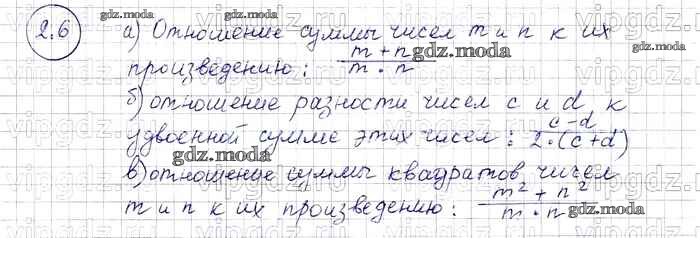 2.6 а) Отношение суммы чисел m и n к их
произведению: m + n / m · n
б) отношение разности чисел c и d к
удвоенной сумме этих чисел: c-d / 2·(c+d)
в) отношение суммы квадратов чисел
m и n к их произведению: m² + n² / m · n
gdz.moda
gdz.moda
gdz.moda
gdz.moda
gdz.moda
gdz.moda
vipgdz.ru